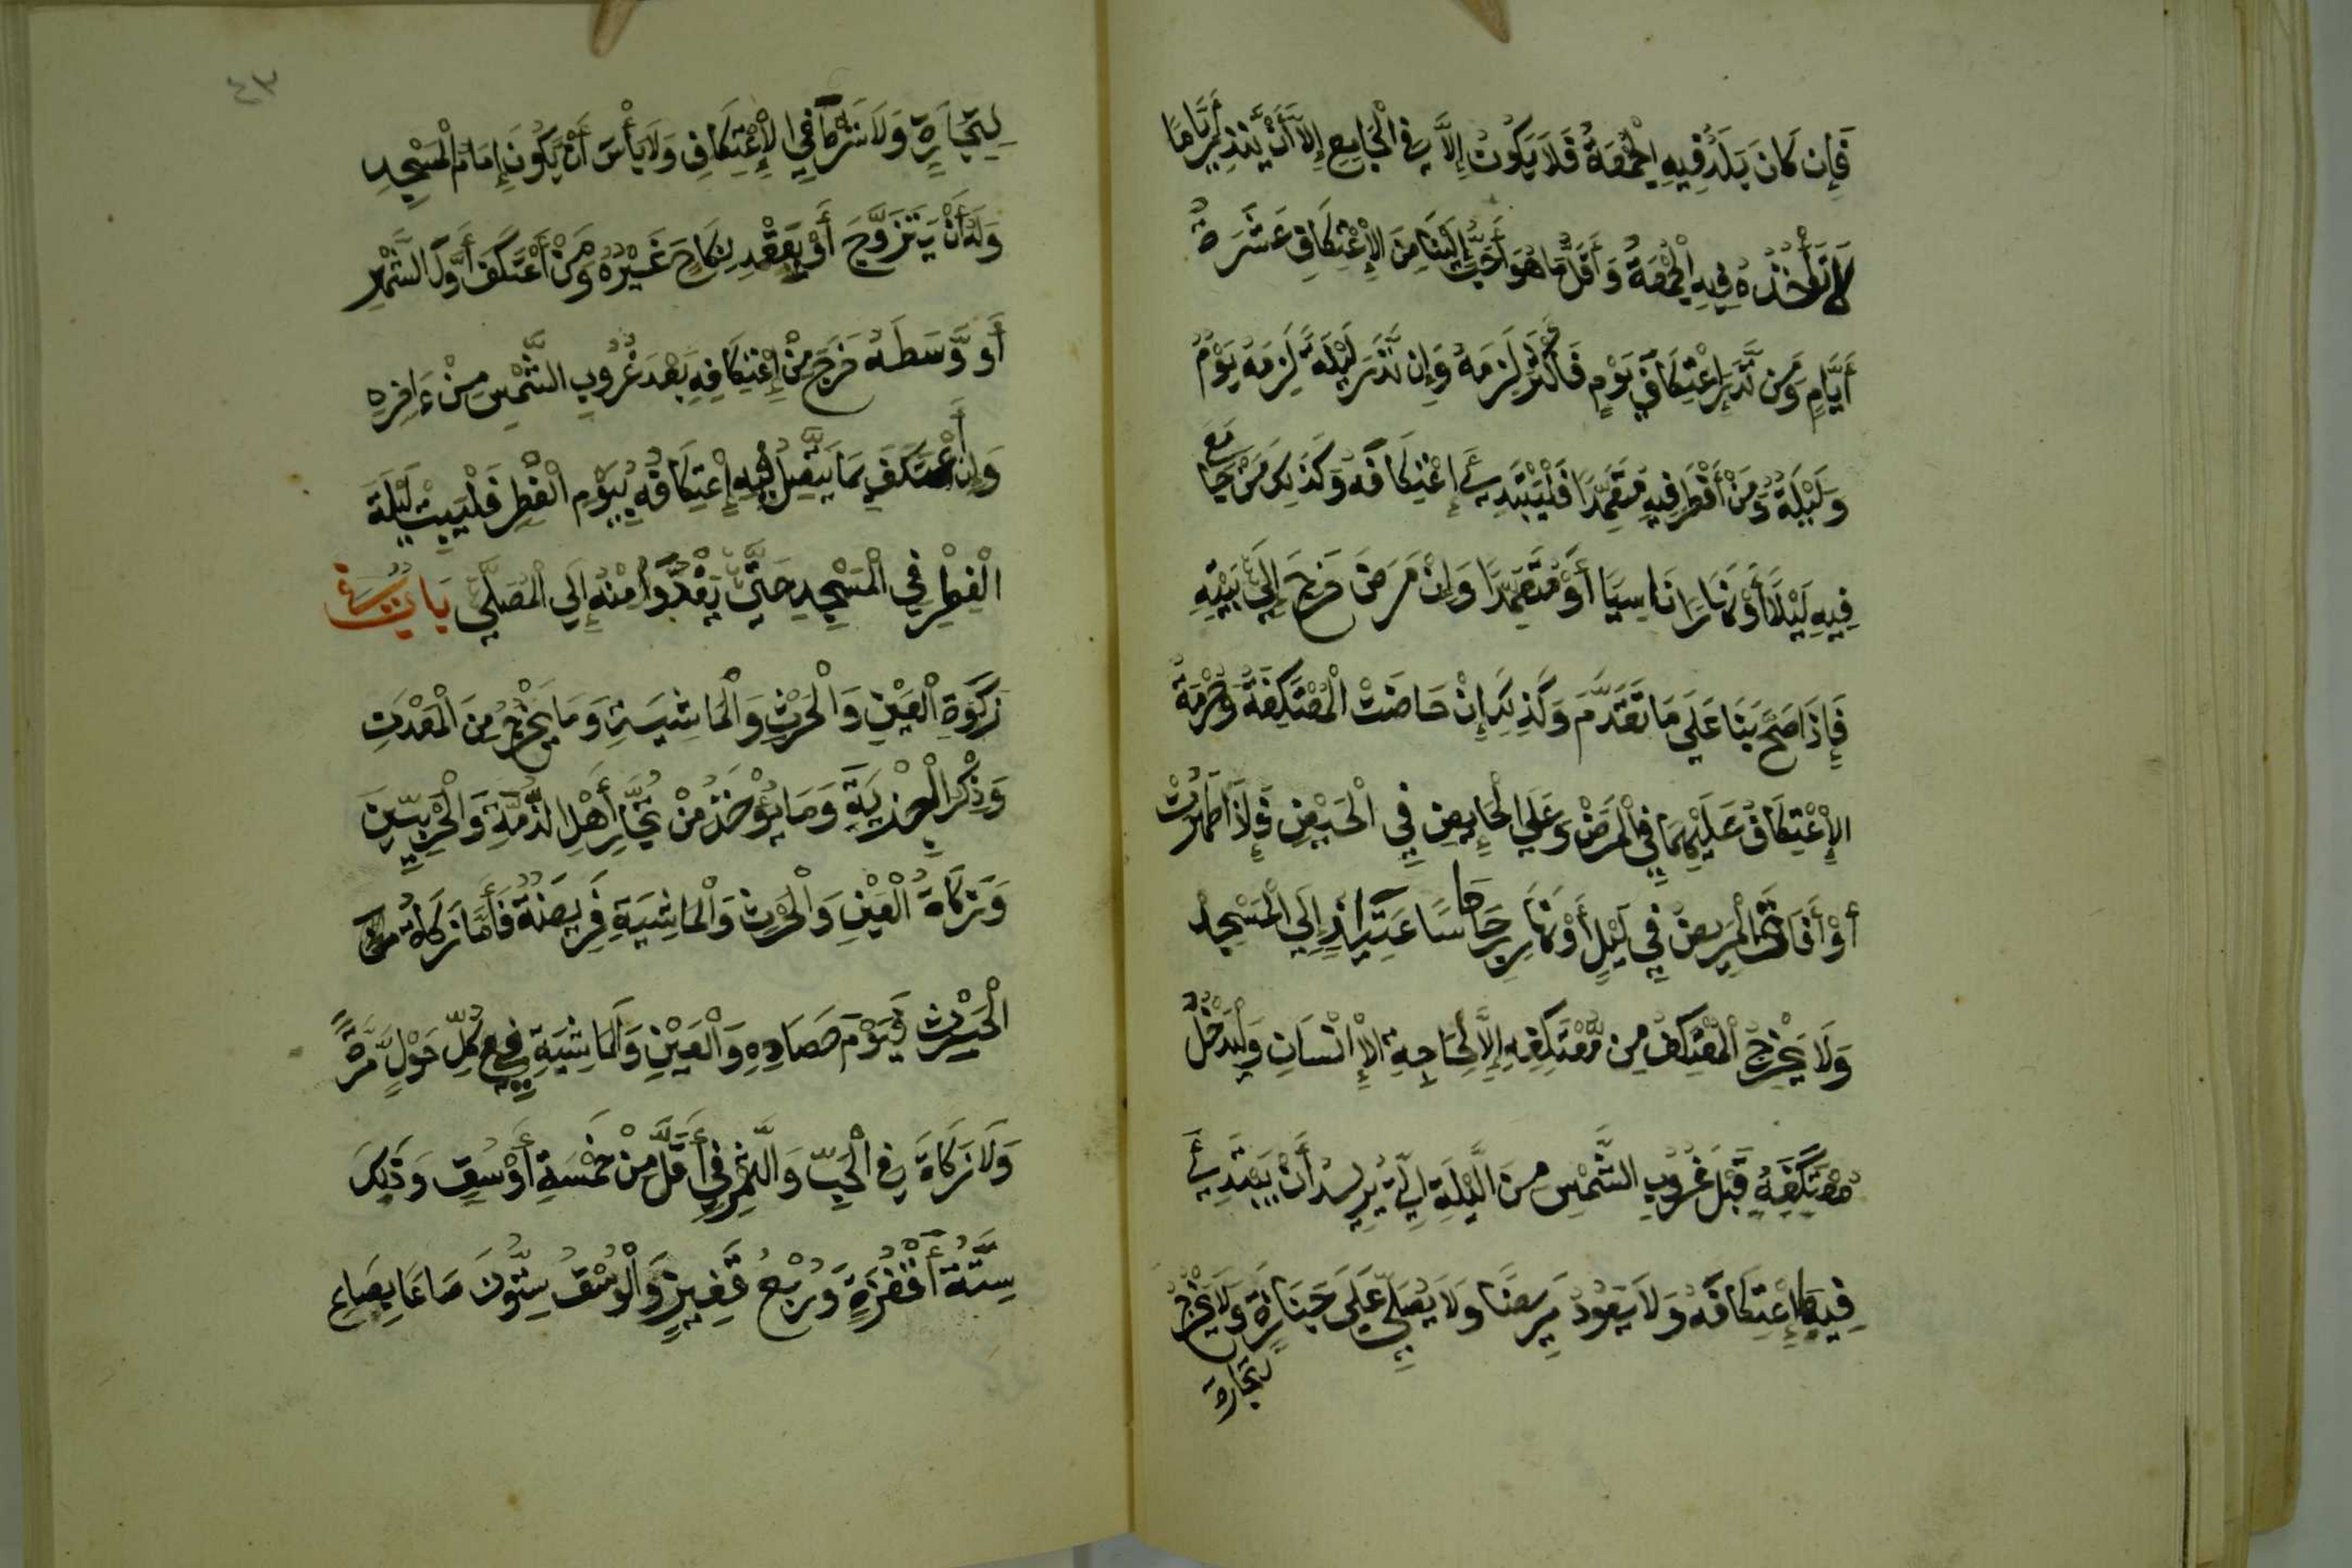 فَإِن كَانَ بَلَدٌ فِيهِ الْجُمُعَةُ فَلَا يَكُونُ إِلَّا فِي الْجَامِعِ إِلَّا أَنْ يَّنْذِرَ أَيَّامًا
لَا تَأْخُذُهُ فِيهِ الْجُمُعَةُ وَأَقَلُّ مَا هُوَ أَحَبُّ إِلَيْنَا مِنَ الْإِعْتِكَافِ عَشَرَةُ
أَيَّامٍ وَمَن نَّذَرَ إِعْتِكَافَ يَوْمٍ فَأَكْثَرَ لَزِمَهُ وَإِن نَّذَرَ لَيْلَةً لَزِمَهُ يَوْمٌ
وَلَيْلَةٌ وَمَنْ أَفْطَرَ فِيهِ مُتَعَمِّدًا فَلْيَبْتَدِئْ إِعْتِكَافَهُ وَكَذَلِكَ مَنْ جَامَعَ
فِيهِ لَيْلًا أَوْ نَهَارًا نَاسِيًا أَوْ مُتَعَمِّدًا وَإِنْ مَرَضَ خَرَجَ إِلَى بَيْتِهِ
فَإِذَا صَحَّ بَنَا عَلَى مَا تَقَدَّمَ وَكَذَلِكَ إِنْ حَاضَتْ الْمُعْتَكِفَةُ وَحُرْمَةُ
الْإِعْتِكَافِ عَلَيْهِمَا فِي الْمَرَضْ وَعَلَى الْحَائِضِ فِي الْحَيْضِ فَإِذَا طَهُرَتْ
أَوْ أَفَاقَ الْمَرِيضُ فِي لَيْلٍ أَوْ نَهَارٍ رَجَعَا سَاعَتَئِذٍ إِلَى الْمَسْجِدِ
وَلَا يَخْرُجُ الْمُعْتَكِفُ مِن مُّعْتَكَفِهِ إِلَّا لِحَاجَةِ الْإِنْسَانِ وَلْيَدْخُلْ
مُعْتَكَفَهُ قَبْلَ غُرُوبِ الشَّمْسِ مِنَ اللَّيْلَةِ الَّتِي يُرِيدُ أَنْ يَبْتَدِئَ
فِيهَا إِعْتِكَافَهُ وَلَا يَعُودُ مَرِيضًا وَلَا يُصَلِّي عَلَى جَنَازَةٍ وَلَا يَخْرُجُ
لِتِجَارَةٍ
٤٣
لِتِجَارَةٍ وَلَا شَرْطَ فِي الْإِعْتِكَافِ وَلَا بَأْسَ أَنْ يَّكُونَ إِمَامَ الْمَسْجِدِ
وَلَهُ أَنْ يَتَزَوَّجَ أَوْ يَعْقِدَ نِكَاحَ غَيْرِهِ وَمَنْ أَعْتَكَفَ أَوَّلَ الشَّهْرِ
أَوْ وَّسَطَهُ خَرَجَ مِنْ إِعْتِكَافِهِ بَعْدَ غُرُوبِ الشَّمْسِ مِنْ ءَاخِرِهِ
وَإِنْ أَعْتَكَفَ بِمَا يَتَّصِلُ فِيهِ إِعْتِكَافُهُ بِيَوْمِ الْفِطْرِ فَلْيَبِتْ لَيْلَةَ
الْفِطْرِ فِي الْمَسْجِدِ حَتَّى يَغْدُوَا مِنْهُ إِلَى الْمُصَلَّى بَابٌ فِي
زَكَوةِ الْعَيْنِ وَالْحَرْثِ وَالْمَاشِيَةِ وَمَا يَخْرُجُ مِنَ الْمَعْدَنِ
وَذِكْرِ الْجِزْيَةِ وَمَا يُؤْخَذُ مِنْ تُجَّارِ أَهْلِ الذِّمَّةِ وَالْحَرْبِيِّينَ
وَزَكَاةُ الْعَيْنِ وَالْحَرْثِ وَالْمَاشِيَةِ فَرِيضَةٌ فَأَمَّا زَكَاةُ
الْحَرْثِ فَيَوْمَ حَصَادِهِ وَالْعَيْنِ وَالْمَاشِيَةِ فَفِي كُلِّ حَوْلٍ مَّرَّةً
وَلَا زَكَاةَ فِي الْحَبِّ وَالتَّمْرِ فِي أَقَلَّ مِنْ خَمْسَةِ أَوْسُقٍ وَذَلِكَ
سِتَّةُ أَقْفِزَةٍ وَرُبْعُ قَفِيزٍ وَالْوَسْقُ سِتُّونَ صَاعًا بِصَاعِ